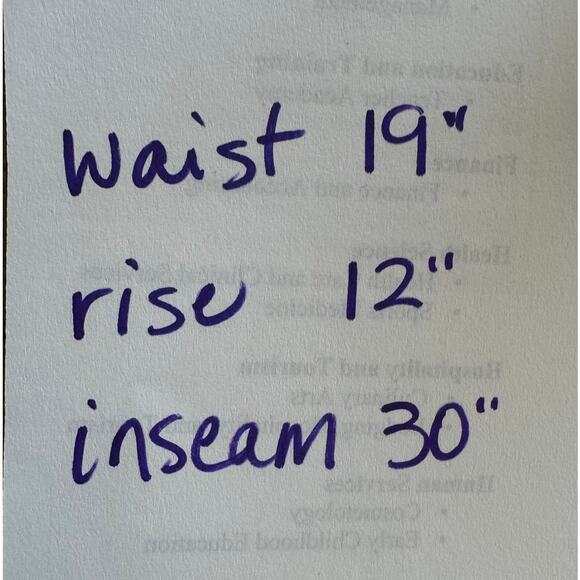 Management
Education and Training
• Teacher Academy
waist 19"
Finance
• Finance and Accounting
Health Science
• Health Care and Clinical Services
rise 12"
• Sports Medicine
Hospitality and Tourism
• Culinary Arts
inseam 30"
Human Services
• Cosmetology
• Early Childhood Education